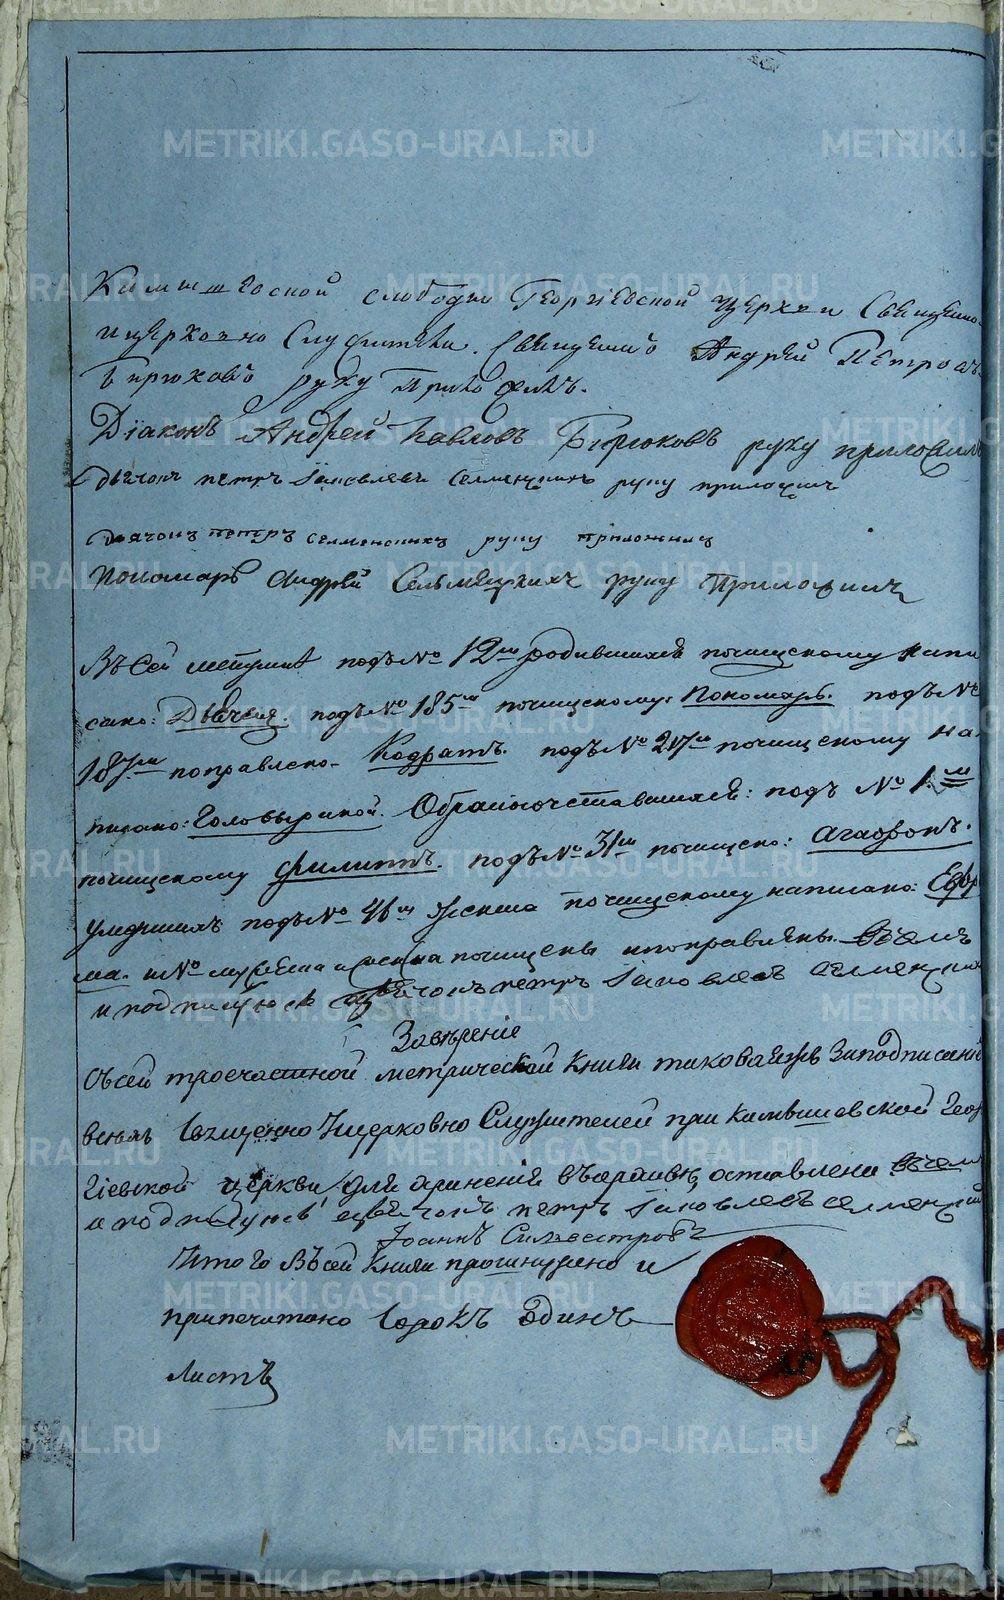 Камышевской слободы Георгіевской церкви Священно
и церковно Служители. Священникъ Андрей Петровъ
Бирюковъ руку приложилъ.
Діаконъ Андрей Павловъ Бирюковъ руку приложилъ
дьячокъ петръ Іаковлевъ селменскихъ руку приложилъ
Дьячокъ петеръ селменскихъ руку приложилъ
Пономарь Андрей Сельменскихъ руку Приложилъ
Въ сей метрикѣ подъ № 12м родившихся почищеному напи
сано: Дьячек. подъ № 185м почищеному: Пономарь. подъ №
187м поправлено Кодратъ. подъ № 217м почищеному на
писано: Головыриной. Обракосочетавшихся: подъ № 1.м
почищеному Филипъ. подъ № 31м почищено: Агафонъ.
Умершихъ подъ № 46м почищеному написано: Евфи
ма. и № почищены и поправлены. Въ чемъ
и подписуюсь дьячокъ петръ Іаковлевъ селменских
Завѣреніе
Съ сей троечастной метрической книги таковая же за подписаніе
всѣхъ Священно и церковно Служителей при Камышевской Геор
гіевской церкви для храненія въ архивѣ оставлена въ чем
и подписуюсь дьячокъ петръ Іаковлевъ селменских
Іоаннъ Силвестровъ
Итого въ сей книги прошнурено и
припечатано сорокъ одинъ
листъ
METRIKI.GASO-URAL.RU